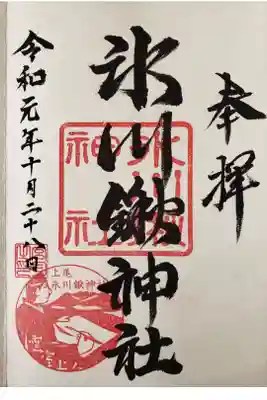 奉拝
氷川鍬神社
氷川鍬神社
令和元年十月二十八日
上尾
氷川鍬神社